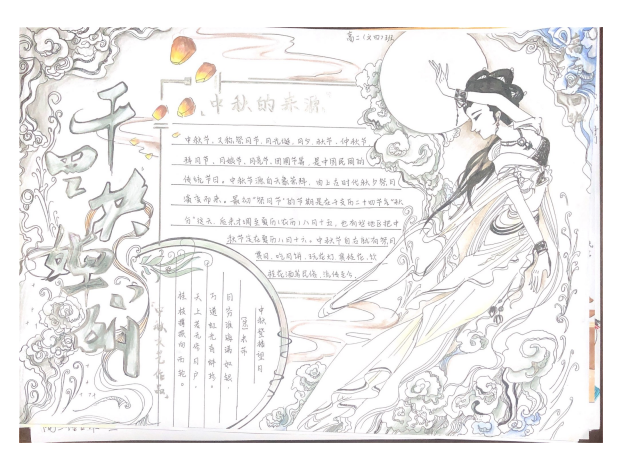 高二(文四)班
千里共婵娟
中秋的来源
中秋节，又称祭月节、月光诞、月夕、秋节、仲秋节、
拜月节、月娘节、月亮节、团圆节等，是中国民间的
传统节日。中秋节源自天象崇拜，由上古时代秋夕祭月
演变而来。最初“祭月节”的节期是在干支历二十四节气“秋
分”这天，后来才调至夏历(农历)八月十五，也有些地区把中
秋节定在夏历八月十六。中秋节自古就有祭月
赏月、吃月饼、玩花灯、赏桂花、饮
桂花酒等民俗，流传至今。
中秋登楼望月
米芾
目穷淮海满如银，
万道虹光育蚌珍。
天上若无修月户，
桂枝撑损向西轮。
中秋文艺作品。